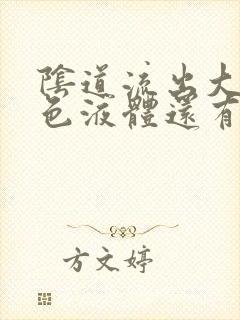 陰道流出大
色液體還有
方文婷